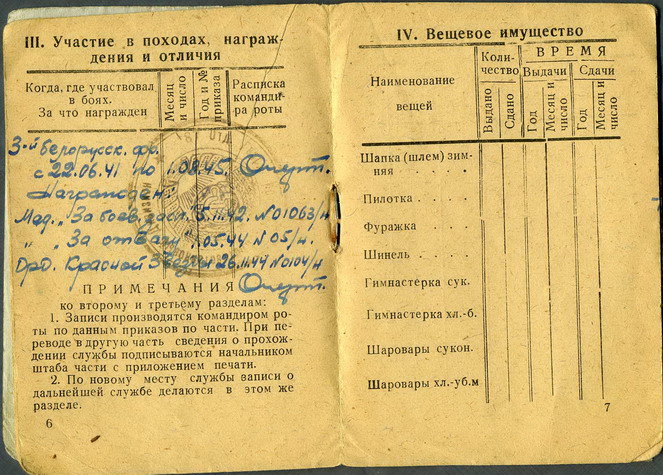 III. Участие в походах, награж-
дения и отличия
Когда, где участвовал
в боях.
За что награжден
Месяц
и число
Год и №
приказа
Расписка
команди-
ра роты
3-й белорусск. фр.
с 22.06.41 по 1.08.45.
Награжден:
Мед. „За боев. засл. 5.11.42. №01063/н
„ „За отвагу" .05.44 №05/н.
Орд. Красной Звезды 26.11.44 №0104/н
ПРИМЕЧАНИЯ
ко второму и третьему разделам:
1. Записи производятся командиром ро-
ты по данным приказов по части. При пе-
реводе в другую часть сведения о прохож-
дении службы подписываются начальником
штаба части с приложением печати.
2. По новому месту службы записи о
дальнейшей службе делаются в этом же
разделе.
6
IV. Вещевое имущество
Наименование
вещей
Коли-
чество
ВРЕМЯ
Выдачи
Сдачи
Выдано
Сдано
Год
Месяц и
число
Год
Месяц и
число
Шапка (шлем) зим-
няя . . . .
Пилотка . . . .
Фуражка . . .
Шинель . . . .
Гимнастерка сук.
Гимнастерка хл.-б.
Шаровары сукон.
Шаровары хл.-уб.м
7